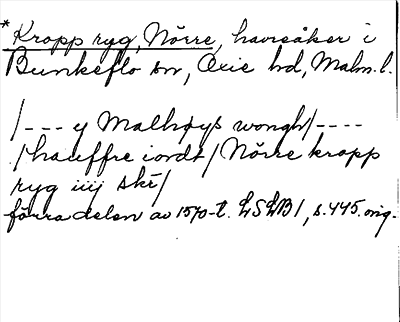 *Kropp ryg, Nörre, havreåker i
Bunkeflo sn, Oxie hd, Malm.l.
/--- y Malhøys wongh/----
/hauffre iordt/Nörre kropp
ryg iiij skr/
förra delen av 1570-t. LSLB1, s.445. orig.